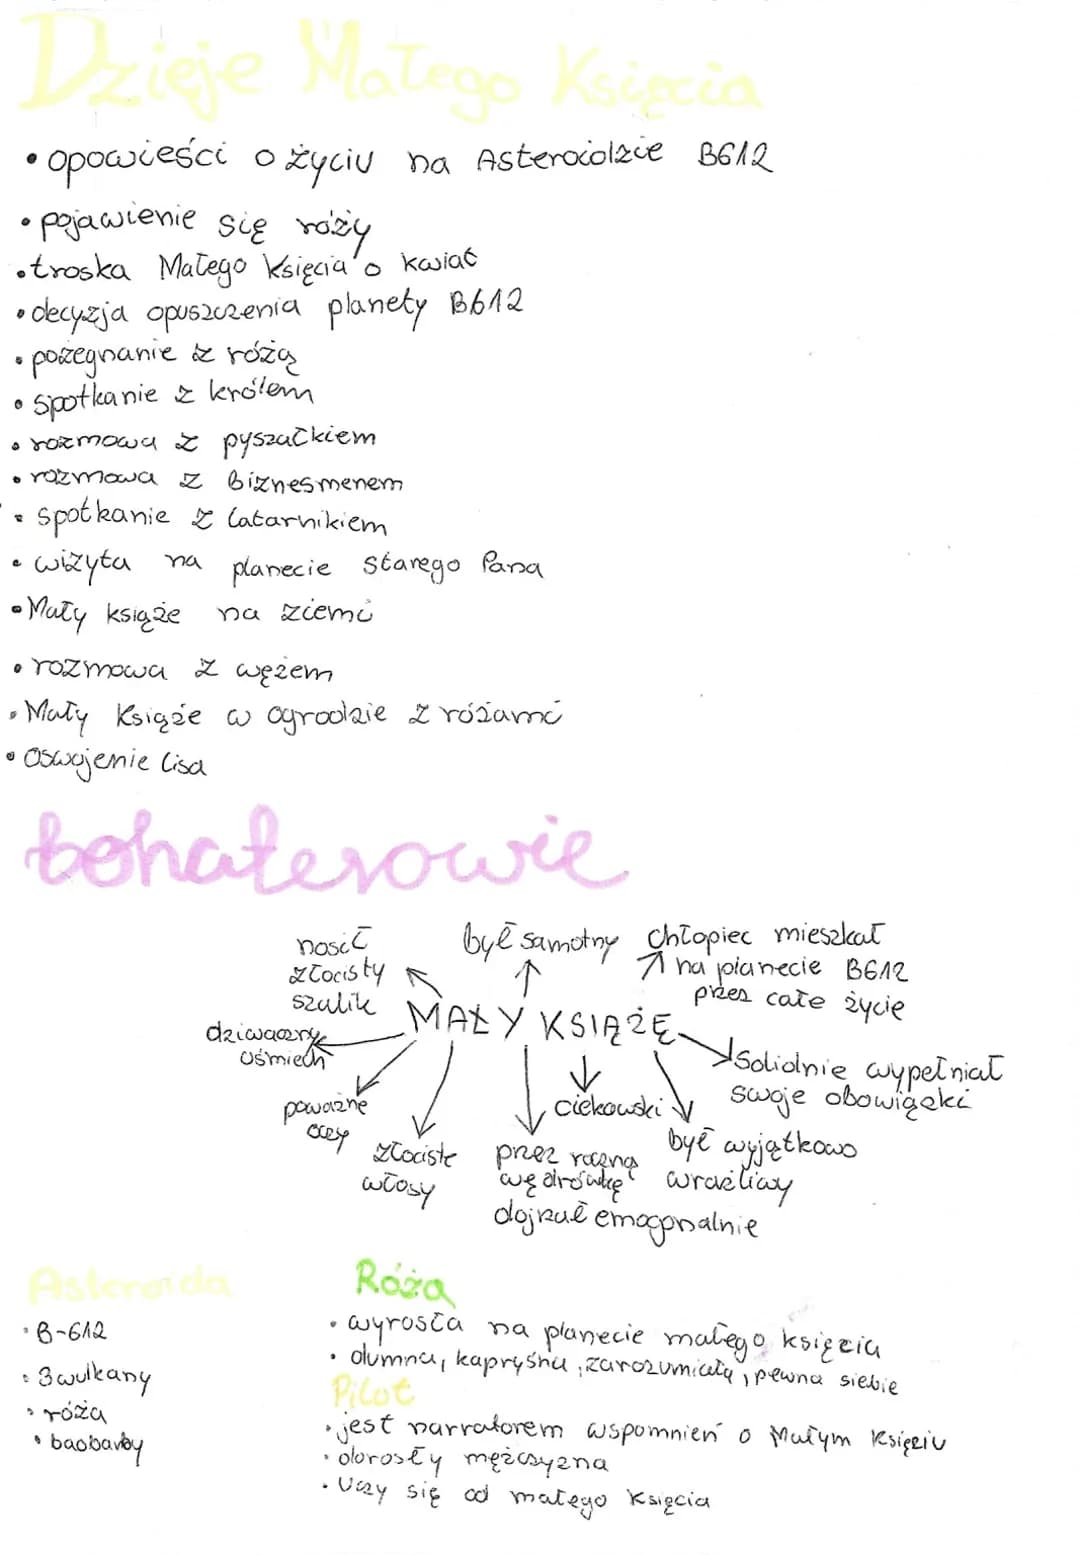 Dzieje Małego Księcia
• opowieści o życiu na Asteroidzie B612
• pojawienie się róży
• troska Małego Księcia o kwiat
• decyzja opuszczenia planety B612
• pożegnanie z różą
• spotkanie z królem
• rozmowa z pyszałkiem
• rozmowa z biznesmenem
• spotkanie z latarnikiem
• wizyta na planecie Starego Pana
• Mały książe na ziemi
• rozmowa z wężem
• Mały Książe w ogrodzie z różami
• Oswojenie lisa
bohaterowie
nosił
złocisty
szalik
był samotny
chłopiec mieszkał
na planecie B612
przez całe życie
MAŁY KSIĄŻĘ
dziwaczny
uśmiech
poważne
oczy
złociste
włosy
przez roczną
wędrówkę
dojrzał emocjonalnie
ciekawski
był wyjątkowo
wrażliwy
Solidnie wypełniał
swoje obowiązki
Asteroida
• B-612
• 3 wulkany
• róża
• baobaby
Róża
• wyrosła na planecie małego księcia
• dumna, kapryśna, zarozumiała, pewna siebie
Pilot
• jest narratorem wspomnień o Małym Księciu
• dorosły mężczyzna
• Uczy się od małego Księcia